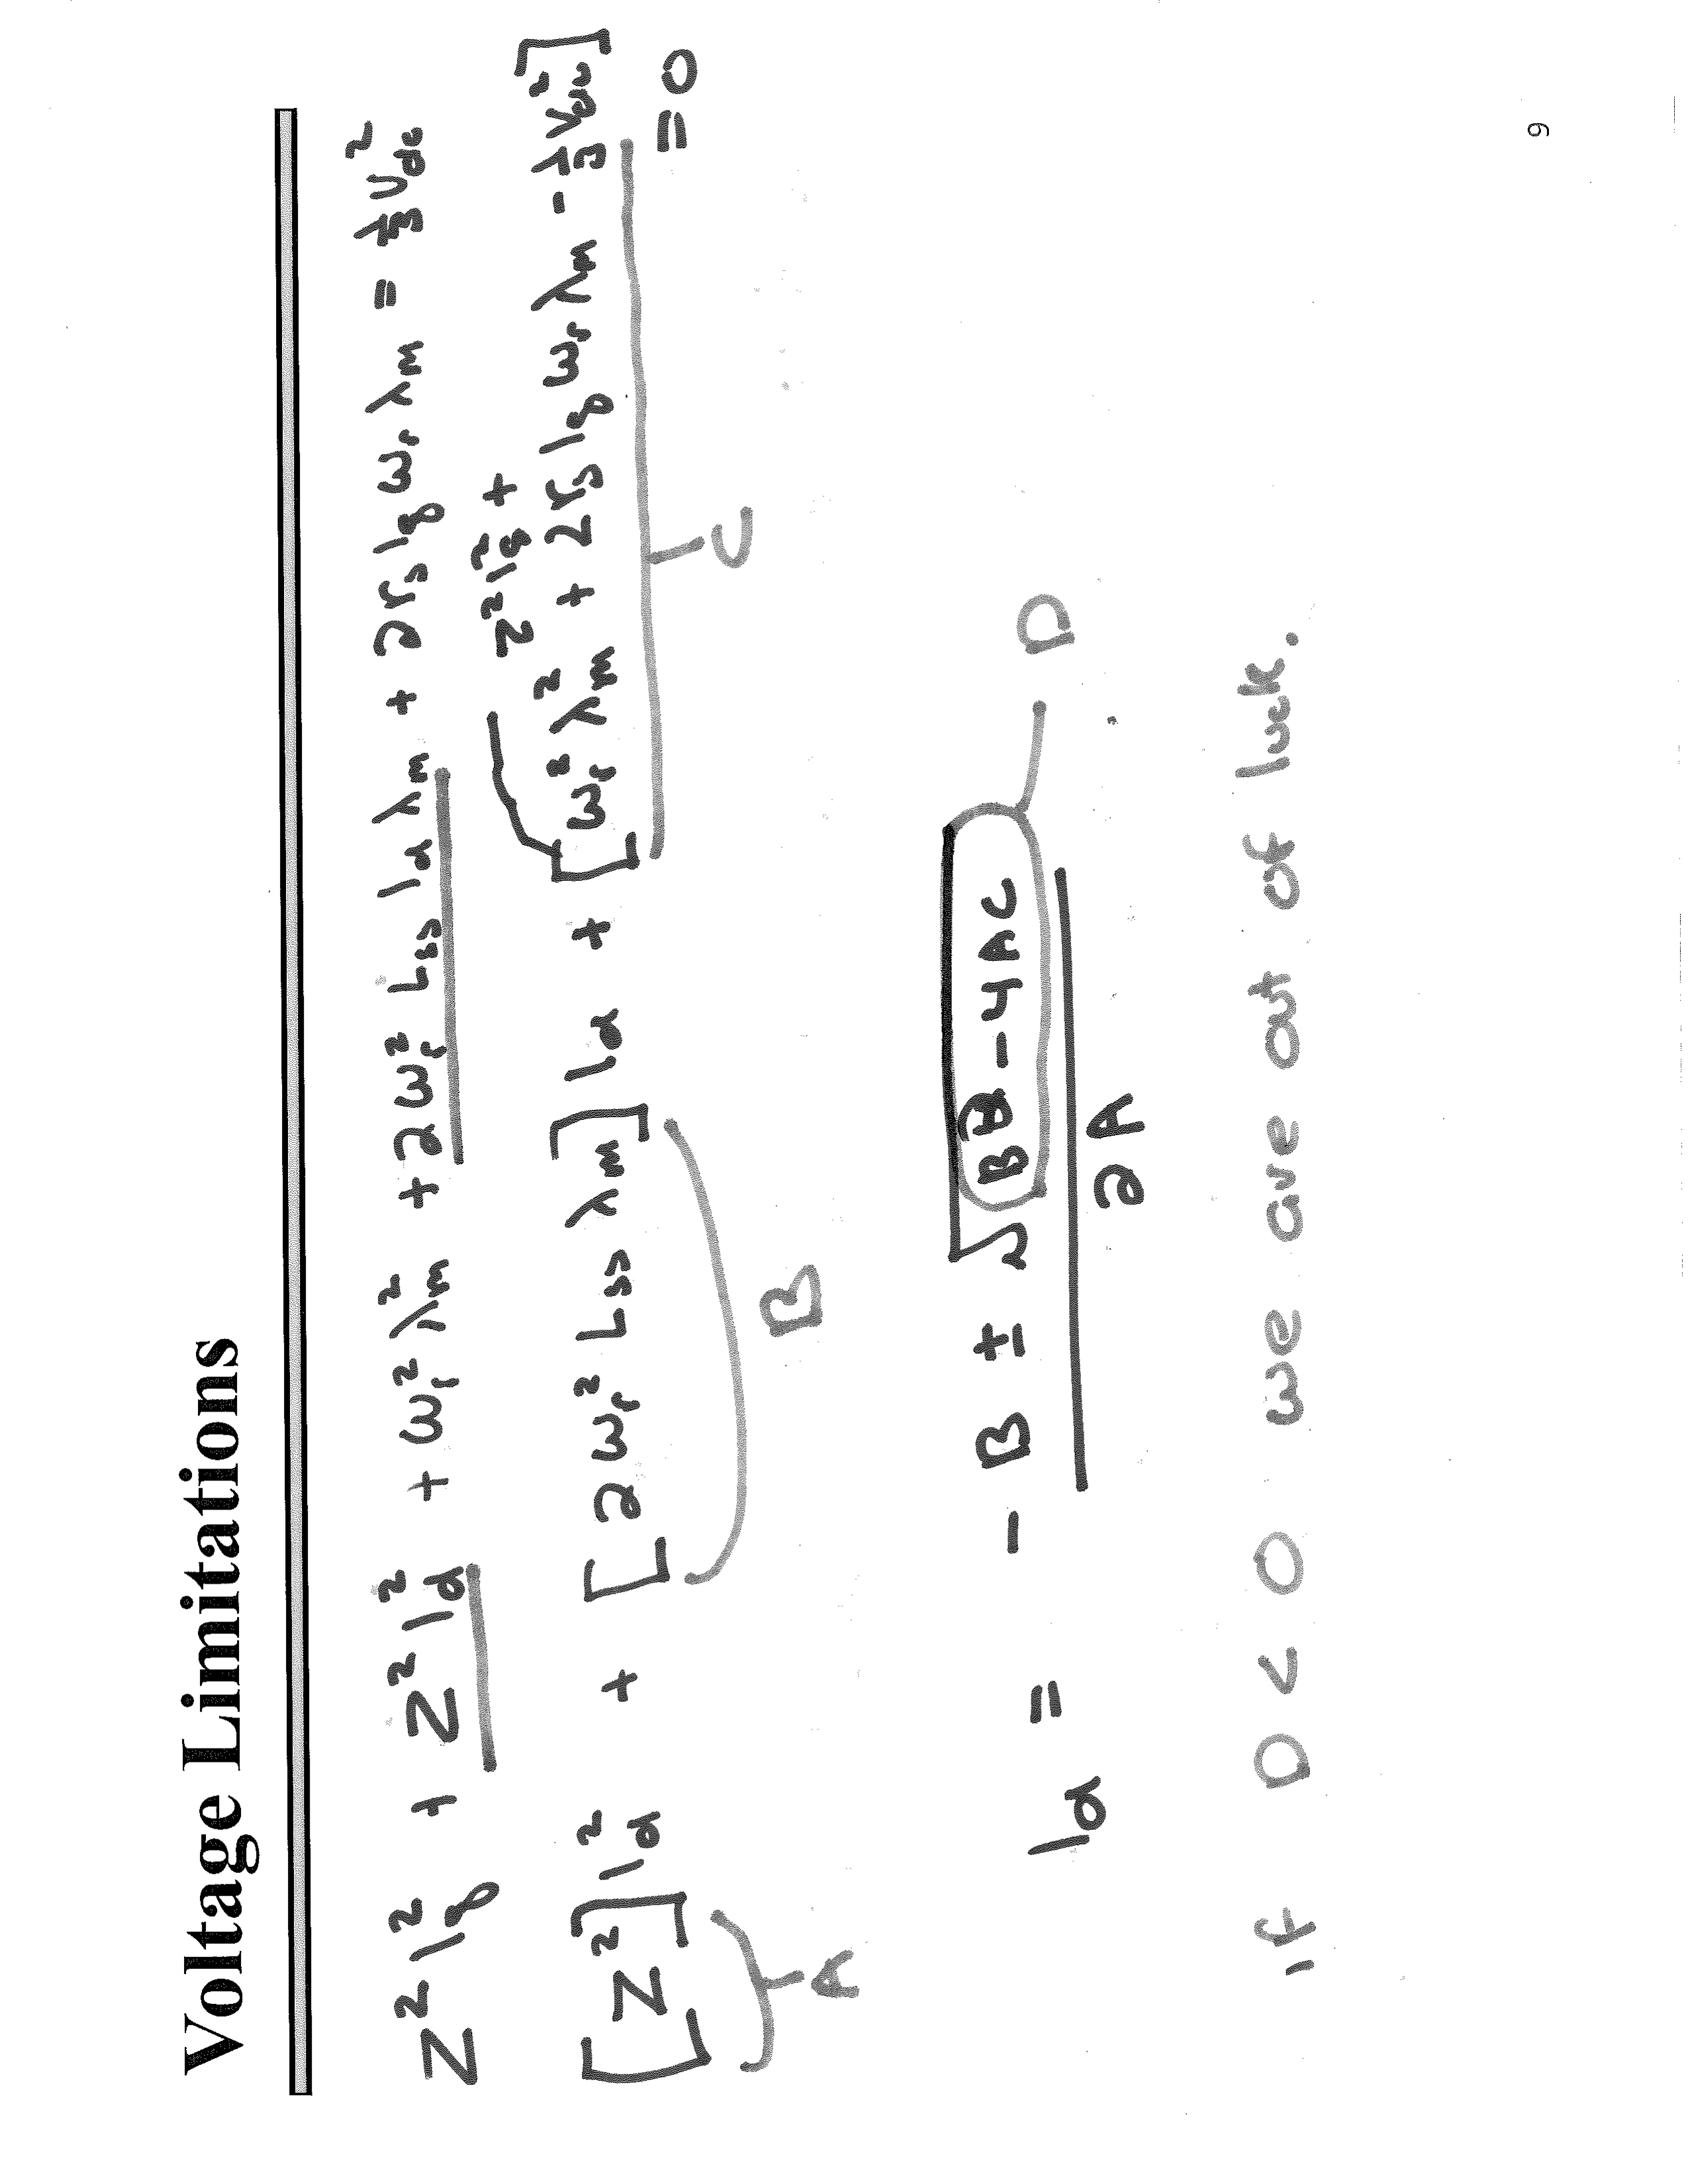 Voltage Limitations
Z² I_q² + Z² I_d² + ω_r² λ_m² + 2ω_r² L_ss I_d λ_m + 2 r_s I_q ω_r λ_m = 1/3 V_dc²
Z² I_q² +
[Z²] I_d² + [2 ω_r² L_ss λ_m] I_d + [ω_r² λ_m² + 2 r_s I_q ω_r λ_m - 1/3 V_dc²]
= 0
A B C
I_d = (- B ± √(B² - 4AC)) / 2A
D
if D < 0 we are out of luck.
9